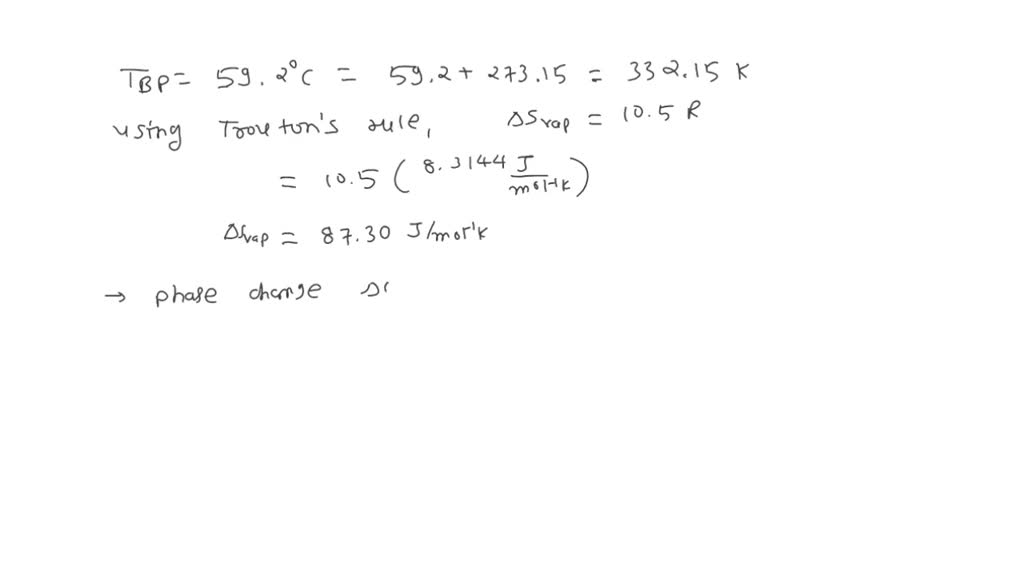 TBP = 59.2°C = 59.2 + 273.15 = 332.15 K
using Trouton's rule, ΔSvap = 10.5 R
= 10.5 ( 8.3144 J / mol·K )
ΔSvap = 87.30 J/mol·K
→ phase change